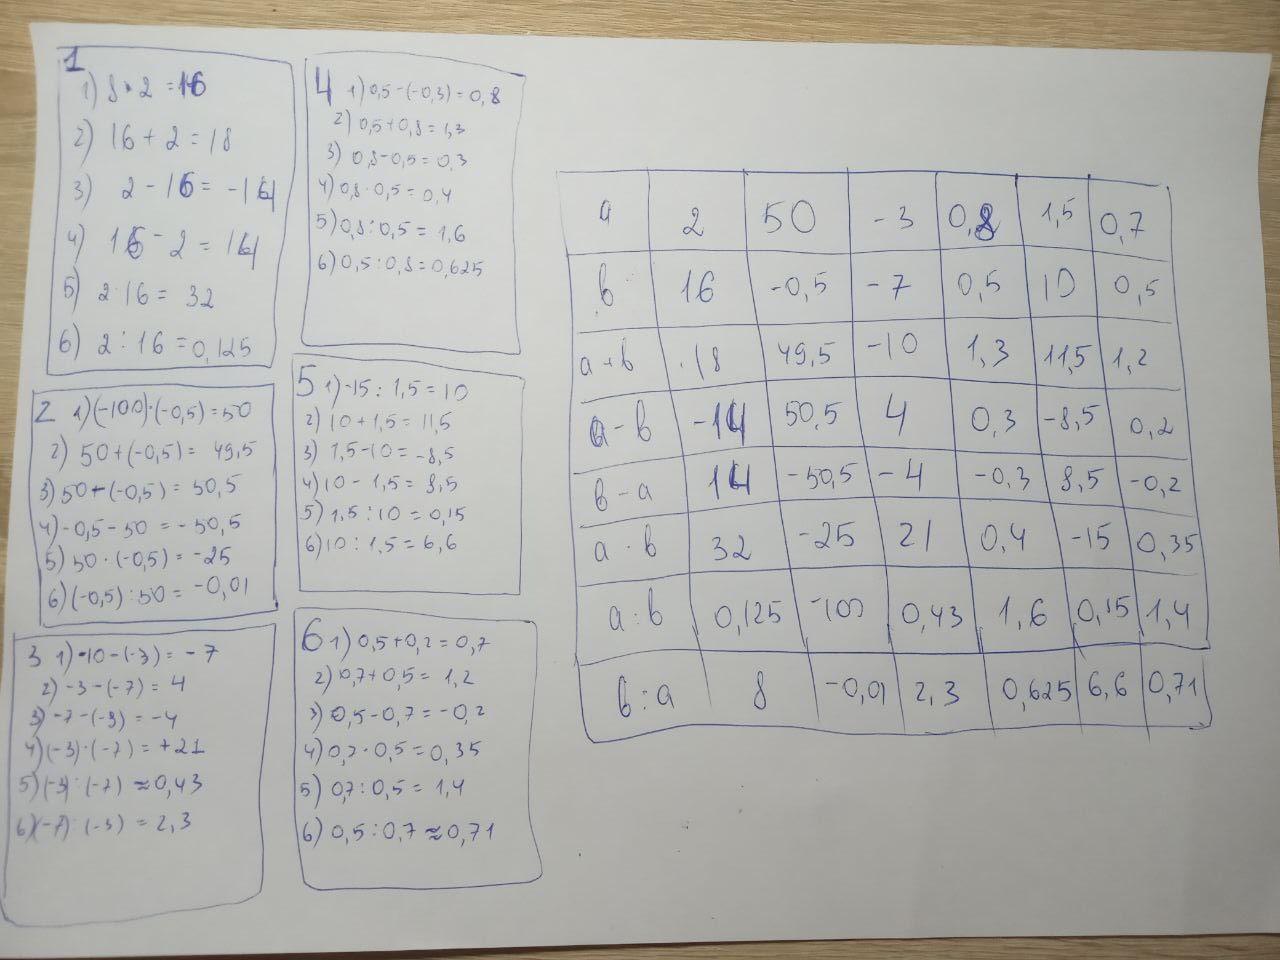 1
1) 8·2 = 16
2) 16 + 2 = 18
3) 2 - 16 = -14
4) 16 - 2 = 14
5) 2·16 = 32
6) 2 : 16 = 0,125
2 1) (-100)·(-0,5) = 50
2) 50 + (-0,5) = 49,5
3) 50 - (-0,5) = 50,5
4) -0,5 - 50 = -50,5
5) 50·(-0,5) = -25
6) (-0,5) : 50 = -0,01
3 1) -10 - (-3) = -7
2) -3 - (-7) = 4
3) -7 - (-3) = -4
4) (-3)·(-7) = +21
5) (-3) : (-7) ≈ 0,43
6) (-7) : (-3) = 2,3
4 1) 0,5 - (-0,3) = 0,8
2) 0,5 + 0,8 = 1,3
3) 0,8 - 0,5 = 0,3
4) 0,8·0,5 = 0,4
5) 0,8 : 0,5 = 1,6
6) 0,5 : 0,8 = 0,625
5 1) -15 : 1,5 = 10
2) 10 + 1,5 = 11,5
3) 1,5 - 10 = -8,5
4) 10 - 1,5 = 8,5
5) 1,5 : 10 = 0,15
6) 10 : 1,5 = 6,6
6 1) 0,5 + 0,2 = 0,7
2) 0,7 + 0,5 = 1,2
3) 0,5 - 0,7 = -0,2
4) 0,7·0,5 = 0,35
5) 0,7 : 0,5 = 1,4
6) 0,5 : 0,7 ≈ 0,71
а 2 50 -3 0,8 1,5 0,7
в 16 -0,5 -7 0,5 10 0,5
а + в 18 49,5 -10 1,3 11,5 1,2
а - в -14 50,5 4 0,3 -8,5 0,2
в - а 14 -50,5 -4 -0,3 8,5 -0,2
а · в 32 -25 21 0,4 -15 0,35
а : в 0,125 -100 0,43 1,6 0,15 1,4
в : а 8 -0,01 2,3 0,625 6,6 0,71